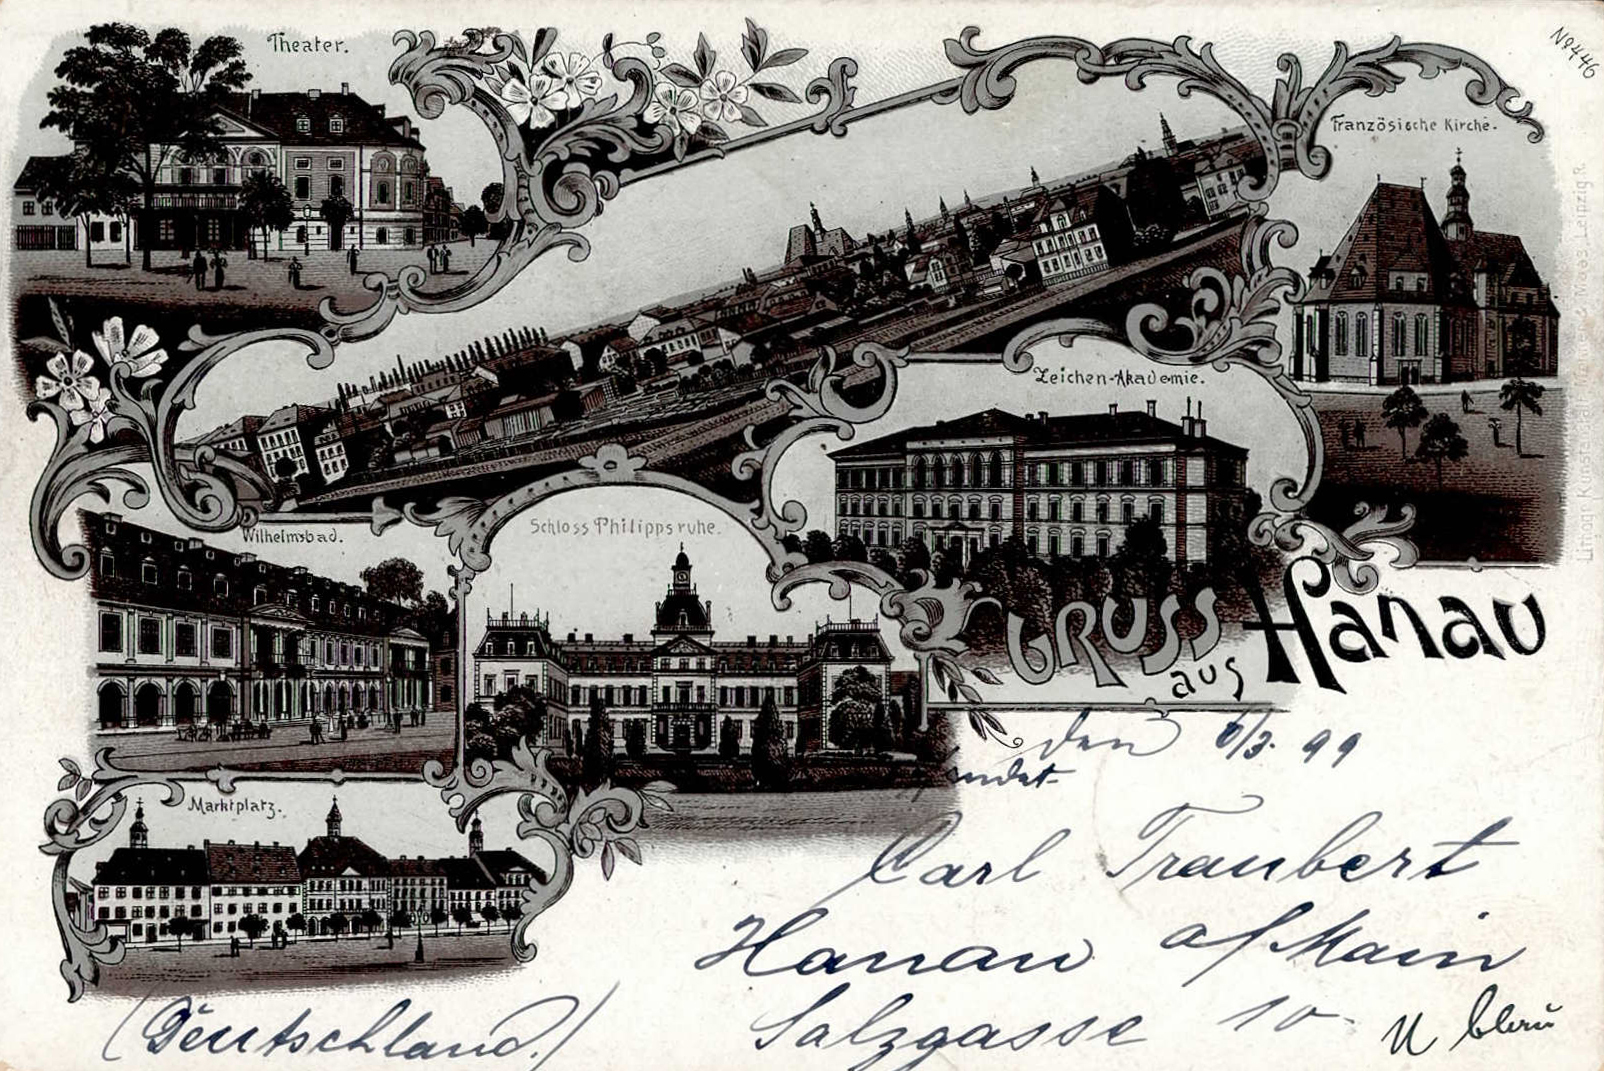 Theater.
Nº 446
Französische Kirche.
Zeichen-Akademie.
Wilhelmsbad.
Schloss Philippsruhe.
Marktplatz.
GRUSS
aus Hanau
den 6/3. 99
Carl Traubert
Hanau a/Main
Salzgasse 10
(Deutschland.)